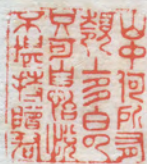 山中何所有
嶺上多白雲
只可自怡悅
不堪持贈君